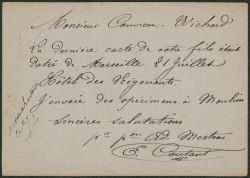 Monsieur Couvreu - Wichard
La dernière carte de votre fils était
datée de Marseille 21 Juillet
Hôtel des Négociants.
J'envoie des spécimens à Moulin
Sincères salutations
pr Ad. Mertens